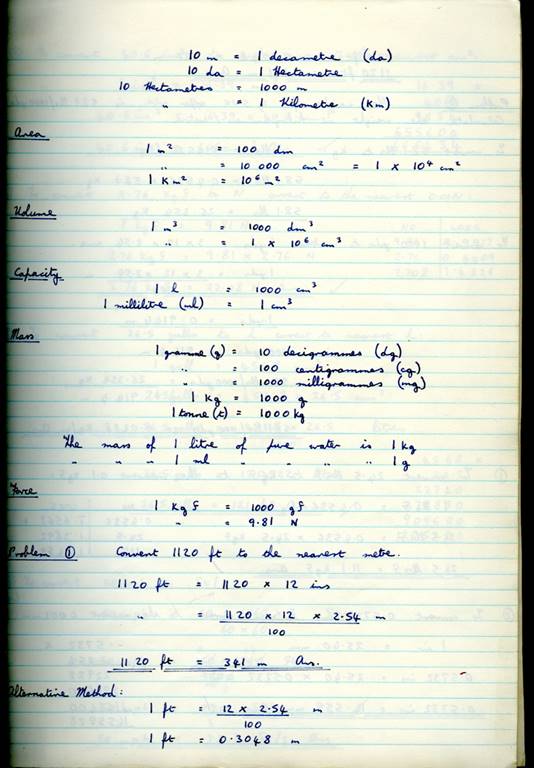 10 m = 1 decametre (da)
10 da = 1 Hectametre
10 Hectametres = 1000 m
" = 1 Kilometre (Km)
Area
1 m² = 100 dm
" = 10 000 cm² = 1 x 10⁴ cm²
1 Km² = 10⁶ m²
Volume
1 m³ = 1000 dm³
" = 1 x 10⁶ cm³
Capacity
1 l = 1000 cm³
1 millilitre (ml) = 1 cm³
Mass
1 gramme (g) = 10 decigrammes (dg)
" = 100 centigrammes (cg)
" = 1000 milligrammes (mg)
1 Kg = 1000 g
1 tonne (t) = 1000 kg
The mass of 1 litre of pure water is 1 kg
" " " 1 ml " " " " 1 g
Force
1 Kg f = 1000 g f
" = 9.81 N
Problem ① Convert 1120 ft to the nearest metre.
1120 ft = 1120 x 12 ins
" = 1120 x 12 x 2.54 m
100
1120 ft = 341 m Ans.
Alternative Method:
1 ft = 12 x 2.54 m
100
1 ft = 0.3048 m